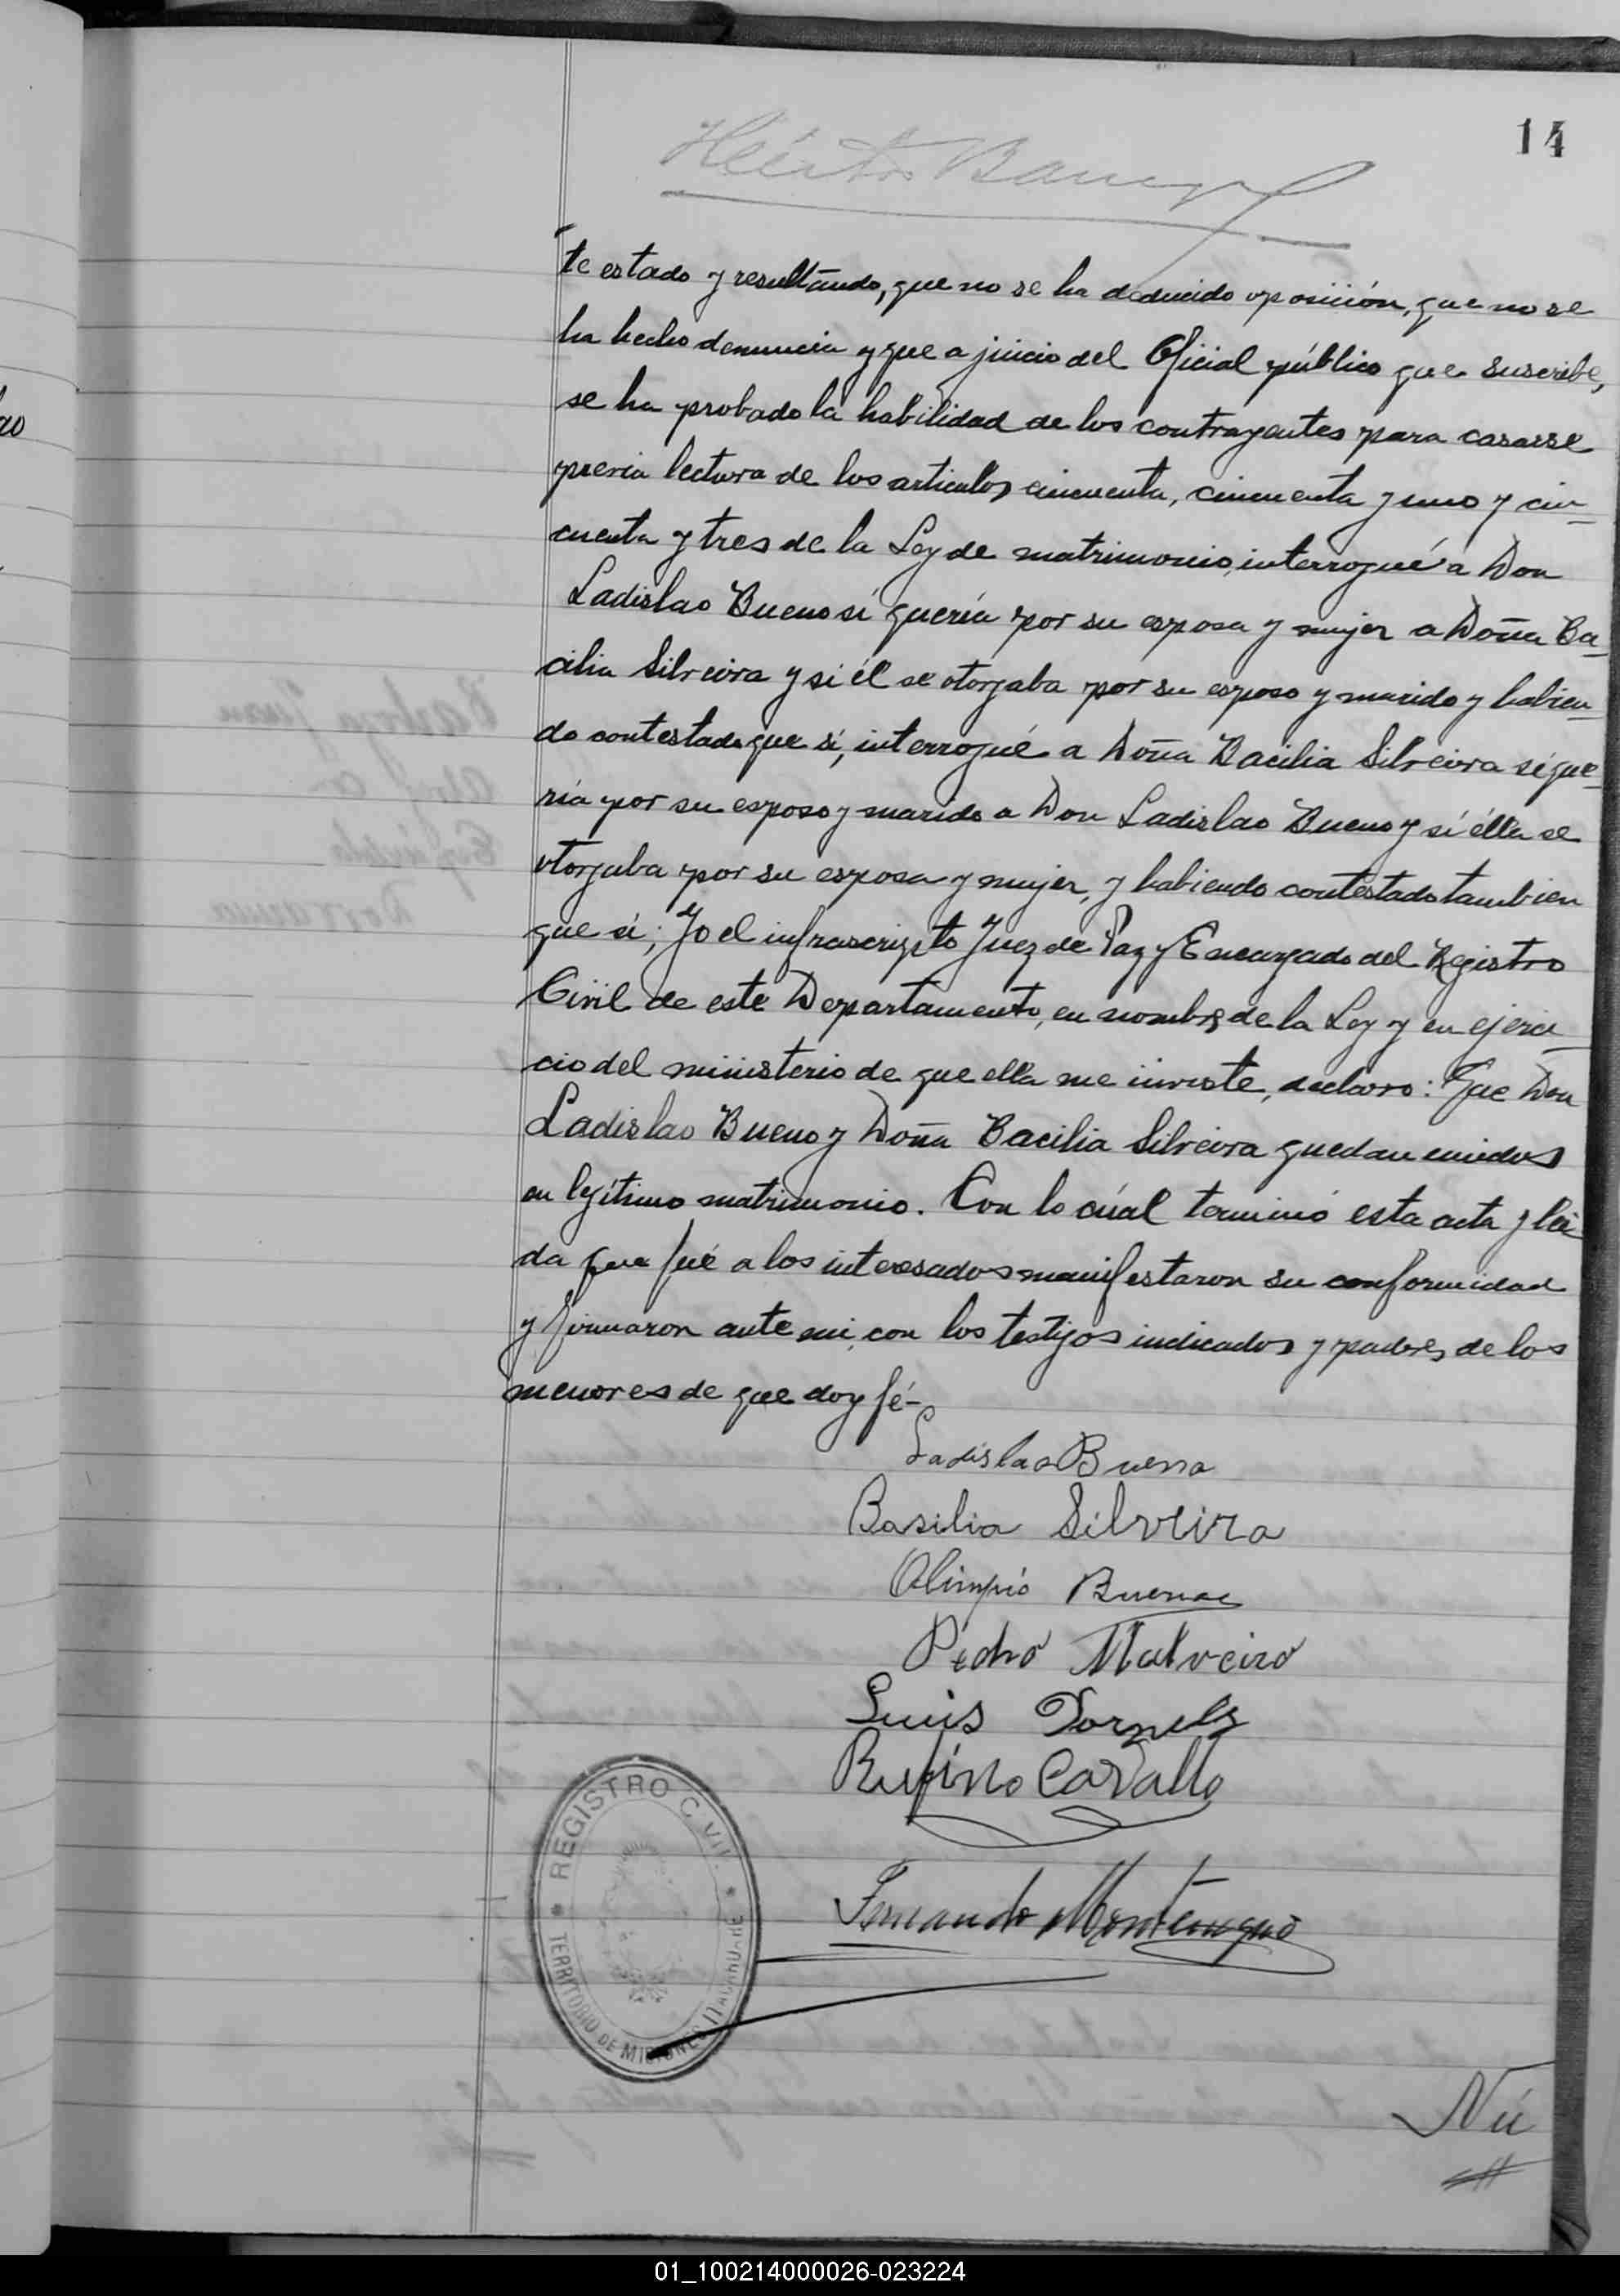 14
te estado y resultando, que no se ha deducido oposición, que no se
ha hecho denuncia y que a juicio del Oficial público que suscribe,
se ha probado la habilidad de los contrayentes para casarse
previa lectura de los articulos cincuenta, cincuenta y uno y cin-
cuenta y tres de la Ley de matrimonio, interrogué a Don
Ladislao Bueno si quería por su esposa y mujer a Doña Ba-
cilia Silveira y si él se otorgaba por su esposo y marido y habien-
do contestado que sí, interrogué a Doña Bacilia Silveira si que-
ría por su esposo y marido a Don Ladislao Bueno y si élla se
otorgaba por su esposa y mujer, y habiendo contestado tambien
que si; Yo el infrascripto Juez de Paz y Encargado del Registro
Civil de este Departamento, en nombre de la Ley y en ejerci-
cio del ministerio de que ella me inviste, declaro: Que Don
Ladislao Bueno y Doña Bacilia Silveira quedan unidos
en legítimo matrimonio. Con lo cúal terminó esta acta y leí
da que fué a los interesados manifestaron su conformidad
y firmaron ante mi, con los testigos indicados y padres de los
menores de que doy fé-
Ladislao Bueno
Basilia Silveira
Olimpio Bueno
Pedro Malveiro
Luis Dornels
Rufino Carvallo
Fernando Montenegro
REGISTRO CIVIL
TERRITORIO DE MISIONES
Nú
01_100214000026-023224